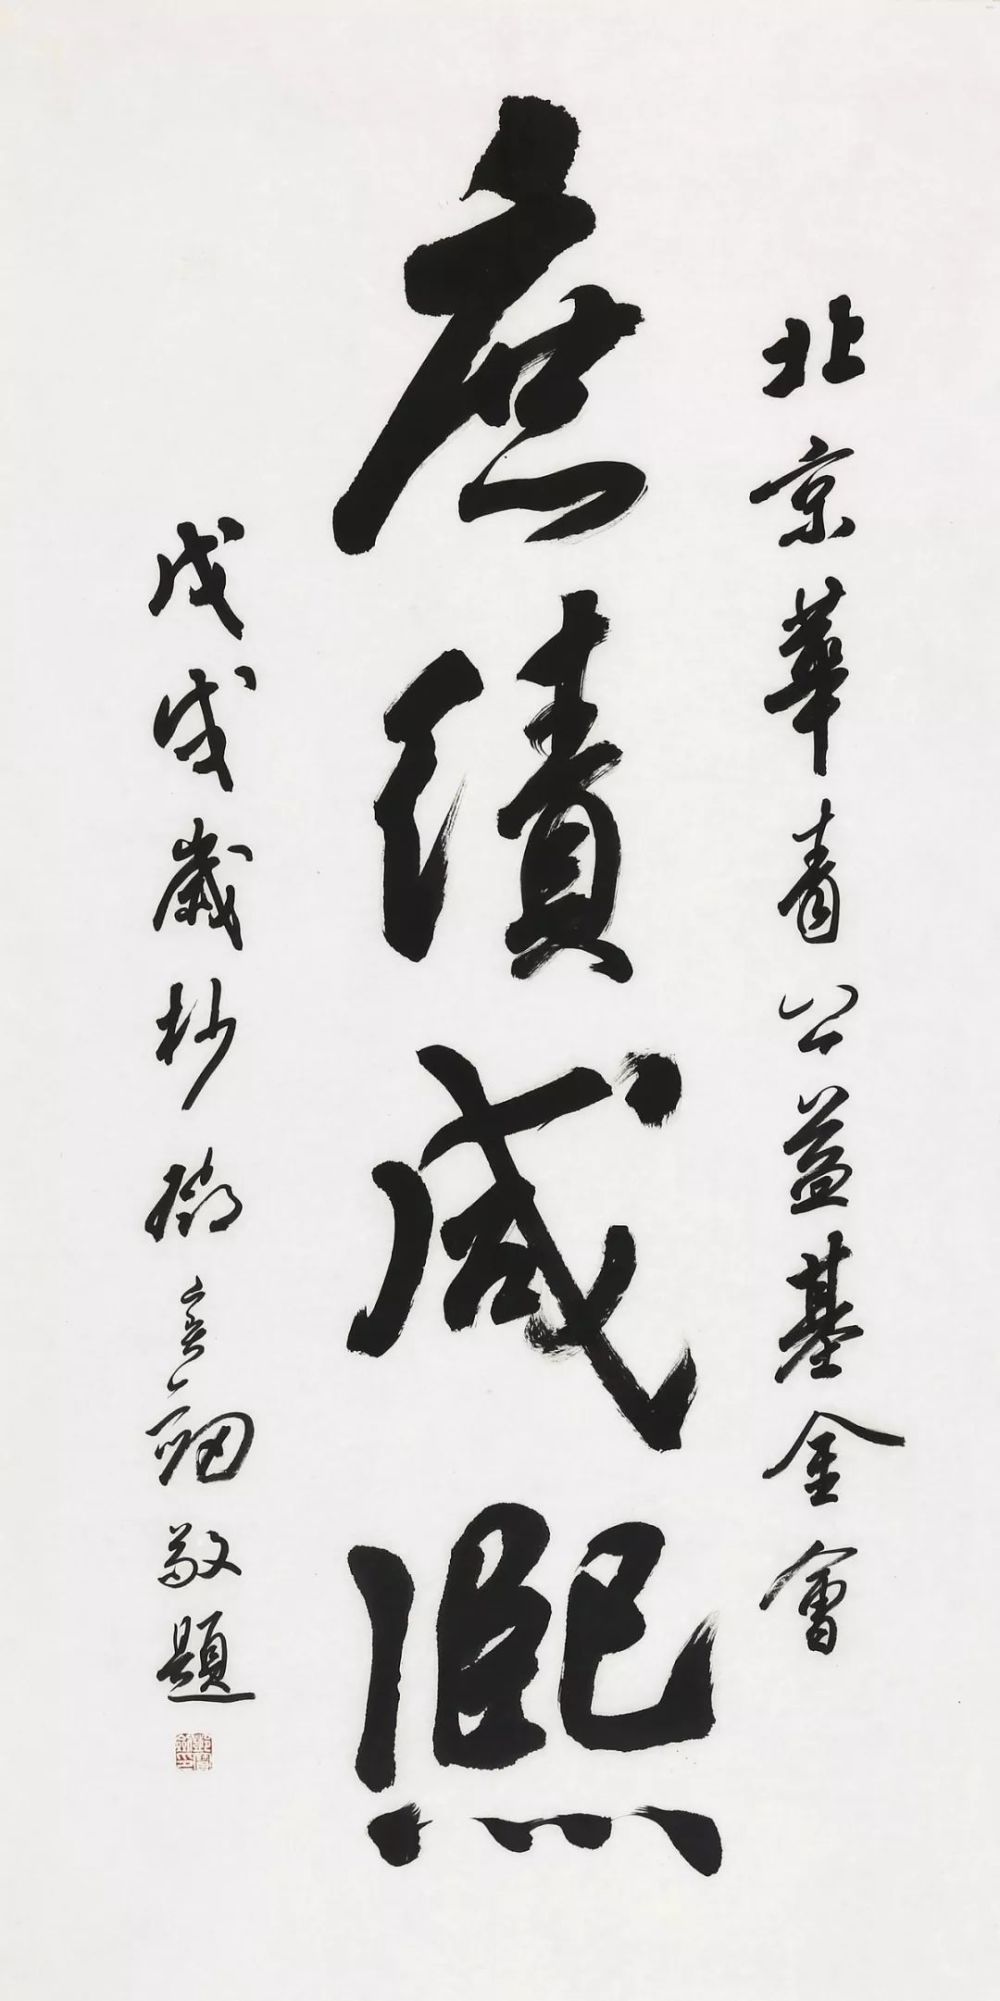 北京華青公益基金會
庶績咸熙
戊戌歲杪鄧宝劒敬題